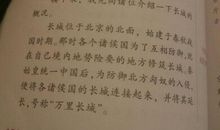 我先向诸位介绍一下长城的
概况。
长城位于北京的北面，始建于春秋战
国时期。那时各个诸侯国为了互相防御，就
在自己境内地势险要的地方修筑长城。秦
始皇统一中国后，为防御北方匈奴的入侵，
便将各诸侯国的长城连接起来，并将其延
长，号称“万里长城”。